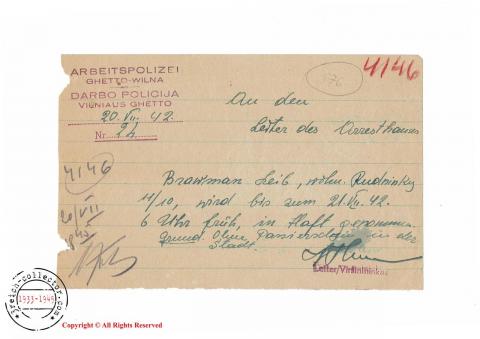 ARBEITSPOLIZEI
GHETTO-WILNA
DARBO POLICIJA
VILNIAUS GHETTO
20. VII. 42.
Nr. 24
376
4146
An den
Leiter des Arresthauses
4146
20/VII
942
Brawman Leib, wohn. Rudninky
11/10, wird bis zum 21.VII.42.
6 Uhr früh, in Haft genommen.
Grund: Ohne Passierschein in der
Stadt.
Leiter/Viršininkas
3reich-collector.com
1933-1945
Copyright © All Rights Reserved